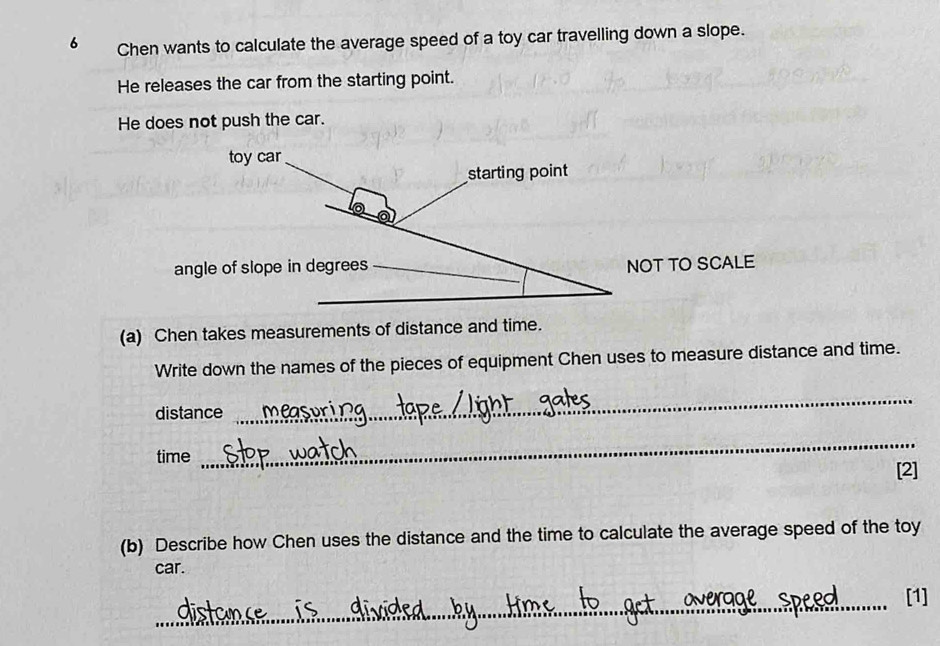 6 Chen wants to calculate the average speed of a toy car travelling down a slope.
He releases the car from the starting point.
He does not push the car.
toy car
starting point
angle of slope in degrees
NOT TO SCALE
(a) Chen takes measurements of distance and time.
Write down the names of the pieces of equipment Chen uses to measure distance and time.
distance measuring tape / light gates
time stop watch
[2]
(b) Describe how Chen uses the distance and the time to calculate the average speed of the toy
car.
distance is divided by time to get average speed [1]